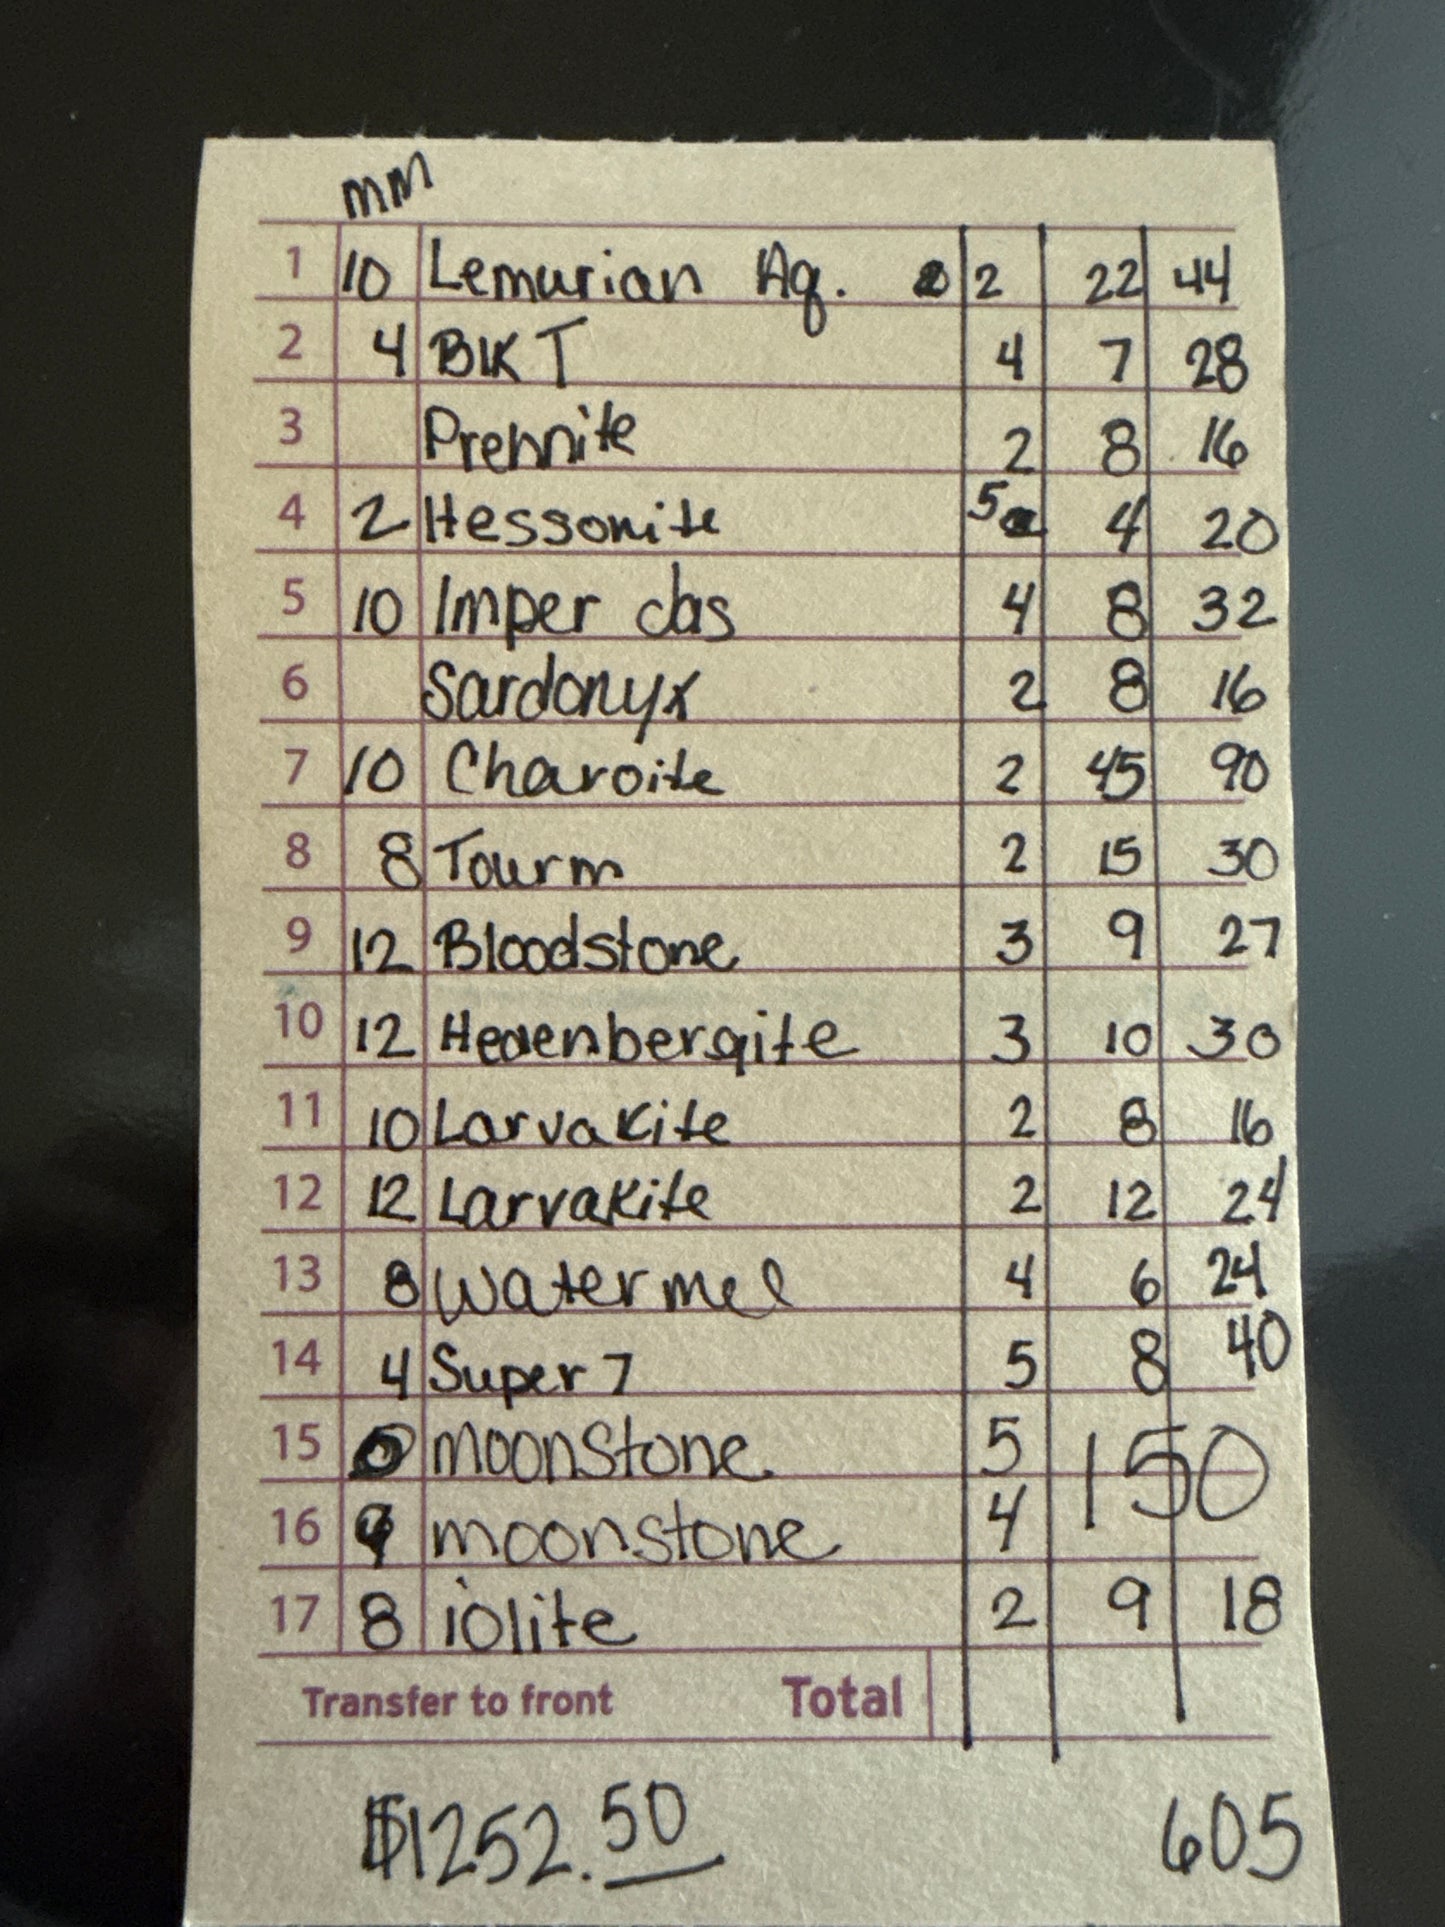 mm
1 10 Lemurian Aq. 2 22 44
2 4 BlK T 4 7 28
3 Prehnite 2 8 16
4 2 Hessonite 5 4 20
5 10 Imper Jas 4 8 32
6 Sardonyx 2 8 16
7 10 Charoite 2 45 90
8 8 Tourm 2 15 30
9 12 Bloodstone 3 9 27
10 12 Hedenbergite 3 10 30
11 10 Larvakite 2 8 16
12 12 Larvakite 2 12 24
13 8 Watermel 4 6 24
14 4 Super 7 5 8 40
15 moonstone 5 150
16 moonstone 4
17 8 iolite 2 9 18
Transfer to front Total
$1252.50 605